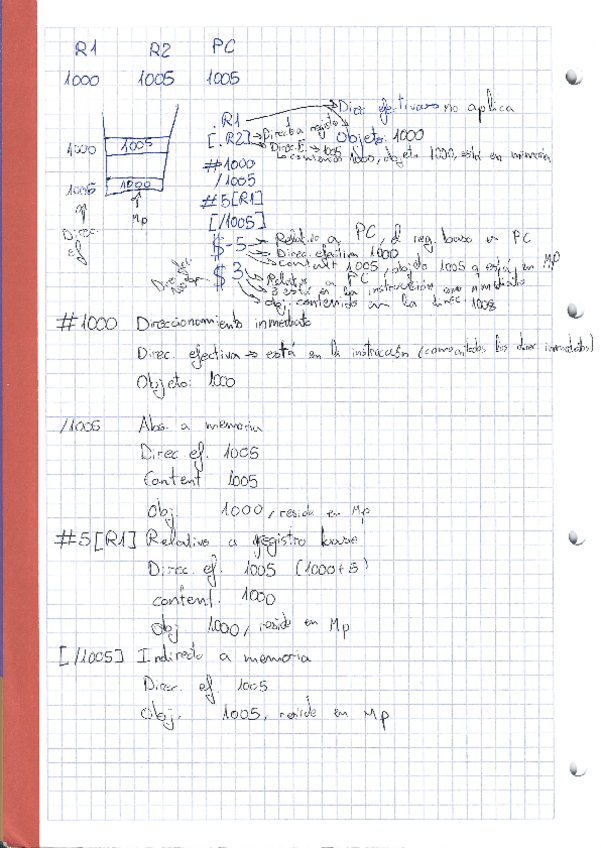 R1 R2 PC
1000 1005 1005
.R1 Direc efectiva no aplica
Objeto: 1000
[.R2] Direc. E. 1005
contenido 1000, objeto 1000, está en memoria
1000 1005
1005 1000
Mp
#1000
/1005
#5[R1]
[/1005]
$-5 Relativo a PC, el reg. base es PC
Direc. efectiva 1000
Content 1005, objeto 1005 q está en MP
$3 Relativo a PC
3 está en la instrucción como inmediato
obj: contenido en la direc 1008
#1000 Direccionamiento inmediato
Direc. efectiva → está en la instrucción
Objeto: 1000
/1005 Abs. a memoria
Direc ef. 1005
Content 1005
Obj. 1000, reside en Mp
#5[R1] Relativo a registro base
Direc. ef. 1005 (1000+5)
content. 1000
Obj 1000, reside en Mp
[/1005] Indirecto a memoria
Direc. ef. 1005
Obj. 1005, reside en Mp